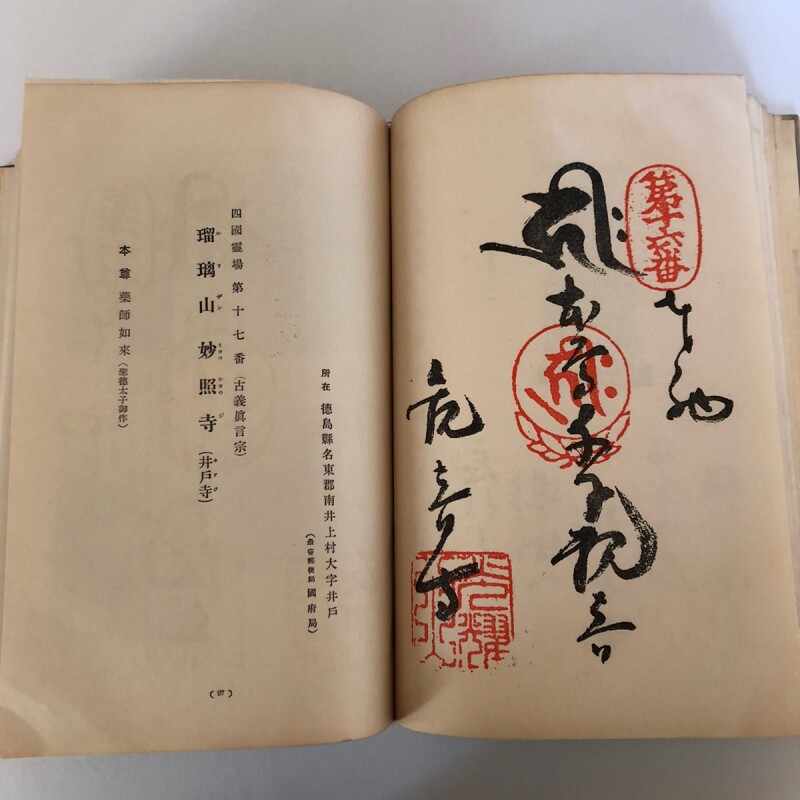 第十六番
奉納
本尊千手観音
観音寺
所在 德島縣名東郡南井上村大字井戸
(最寄郵便局 國府局)
四國靈場第十七番(古義眞言宗)
瑠璃山妙照寺(井戸寺)
本尊 藥師如來(聖德太子御作)